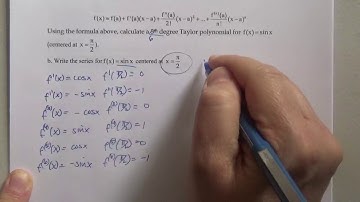 f(x) ≈ f(a) + f'(a)(x−a) + f''(a)/2! (x−a)² + ... + f⁽ⁿ⁾(a)/n! (x−a)ⁿ
Using the formula above, calculate a degree Taylor polynomial for f(x) = sin x
6
(centered at x = π/2).
b. Write the series for f(x) = sin x centered at x = π/2
f'(x) = cosx f'(π/2) = 0
f''(x) = -sinx f''(π/2) = -1
f'''(x) = -cosx f⁽³⁾(π/2) = 0
f⁽⁴⁾(x) = sinx f⁽⁴⁾(π/2) = 1
f⁽⁵⁾(x) = cosx f⁽⁵⁾(π/2) = 0
f⁽⁶⁾(x) = -sinx f⁽⁶⁾(π/2) = -1